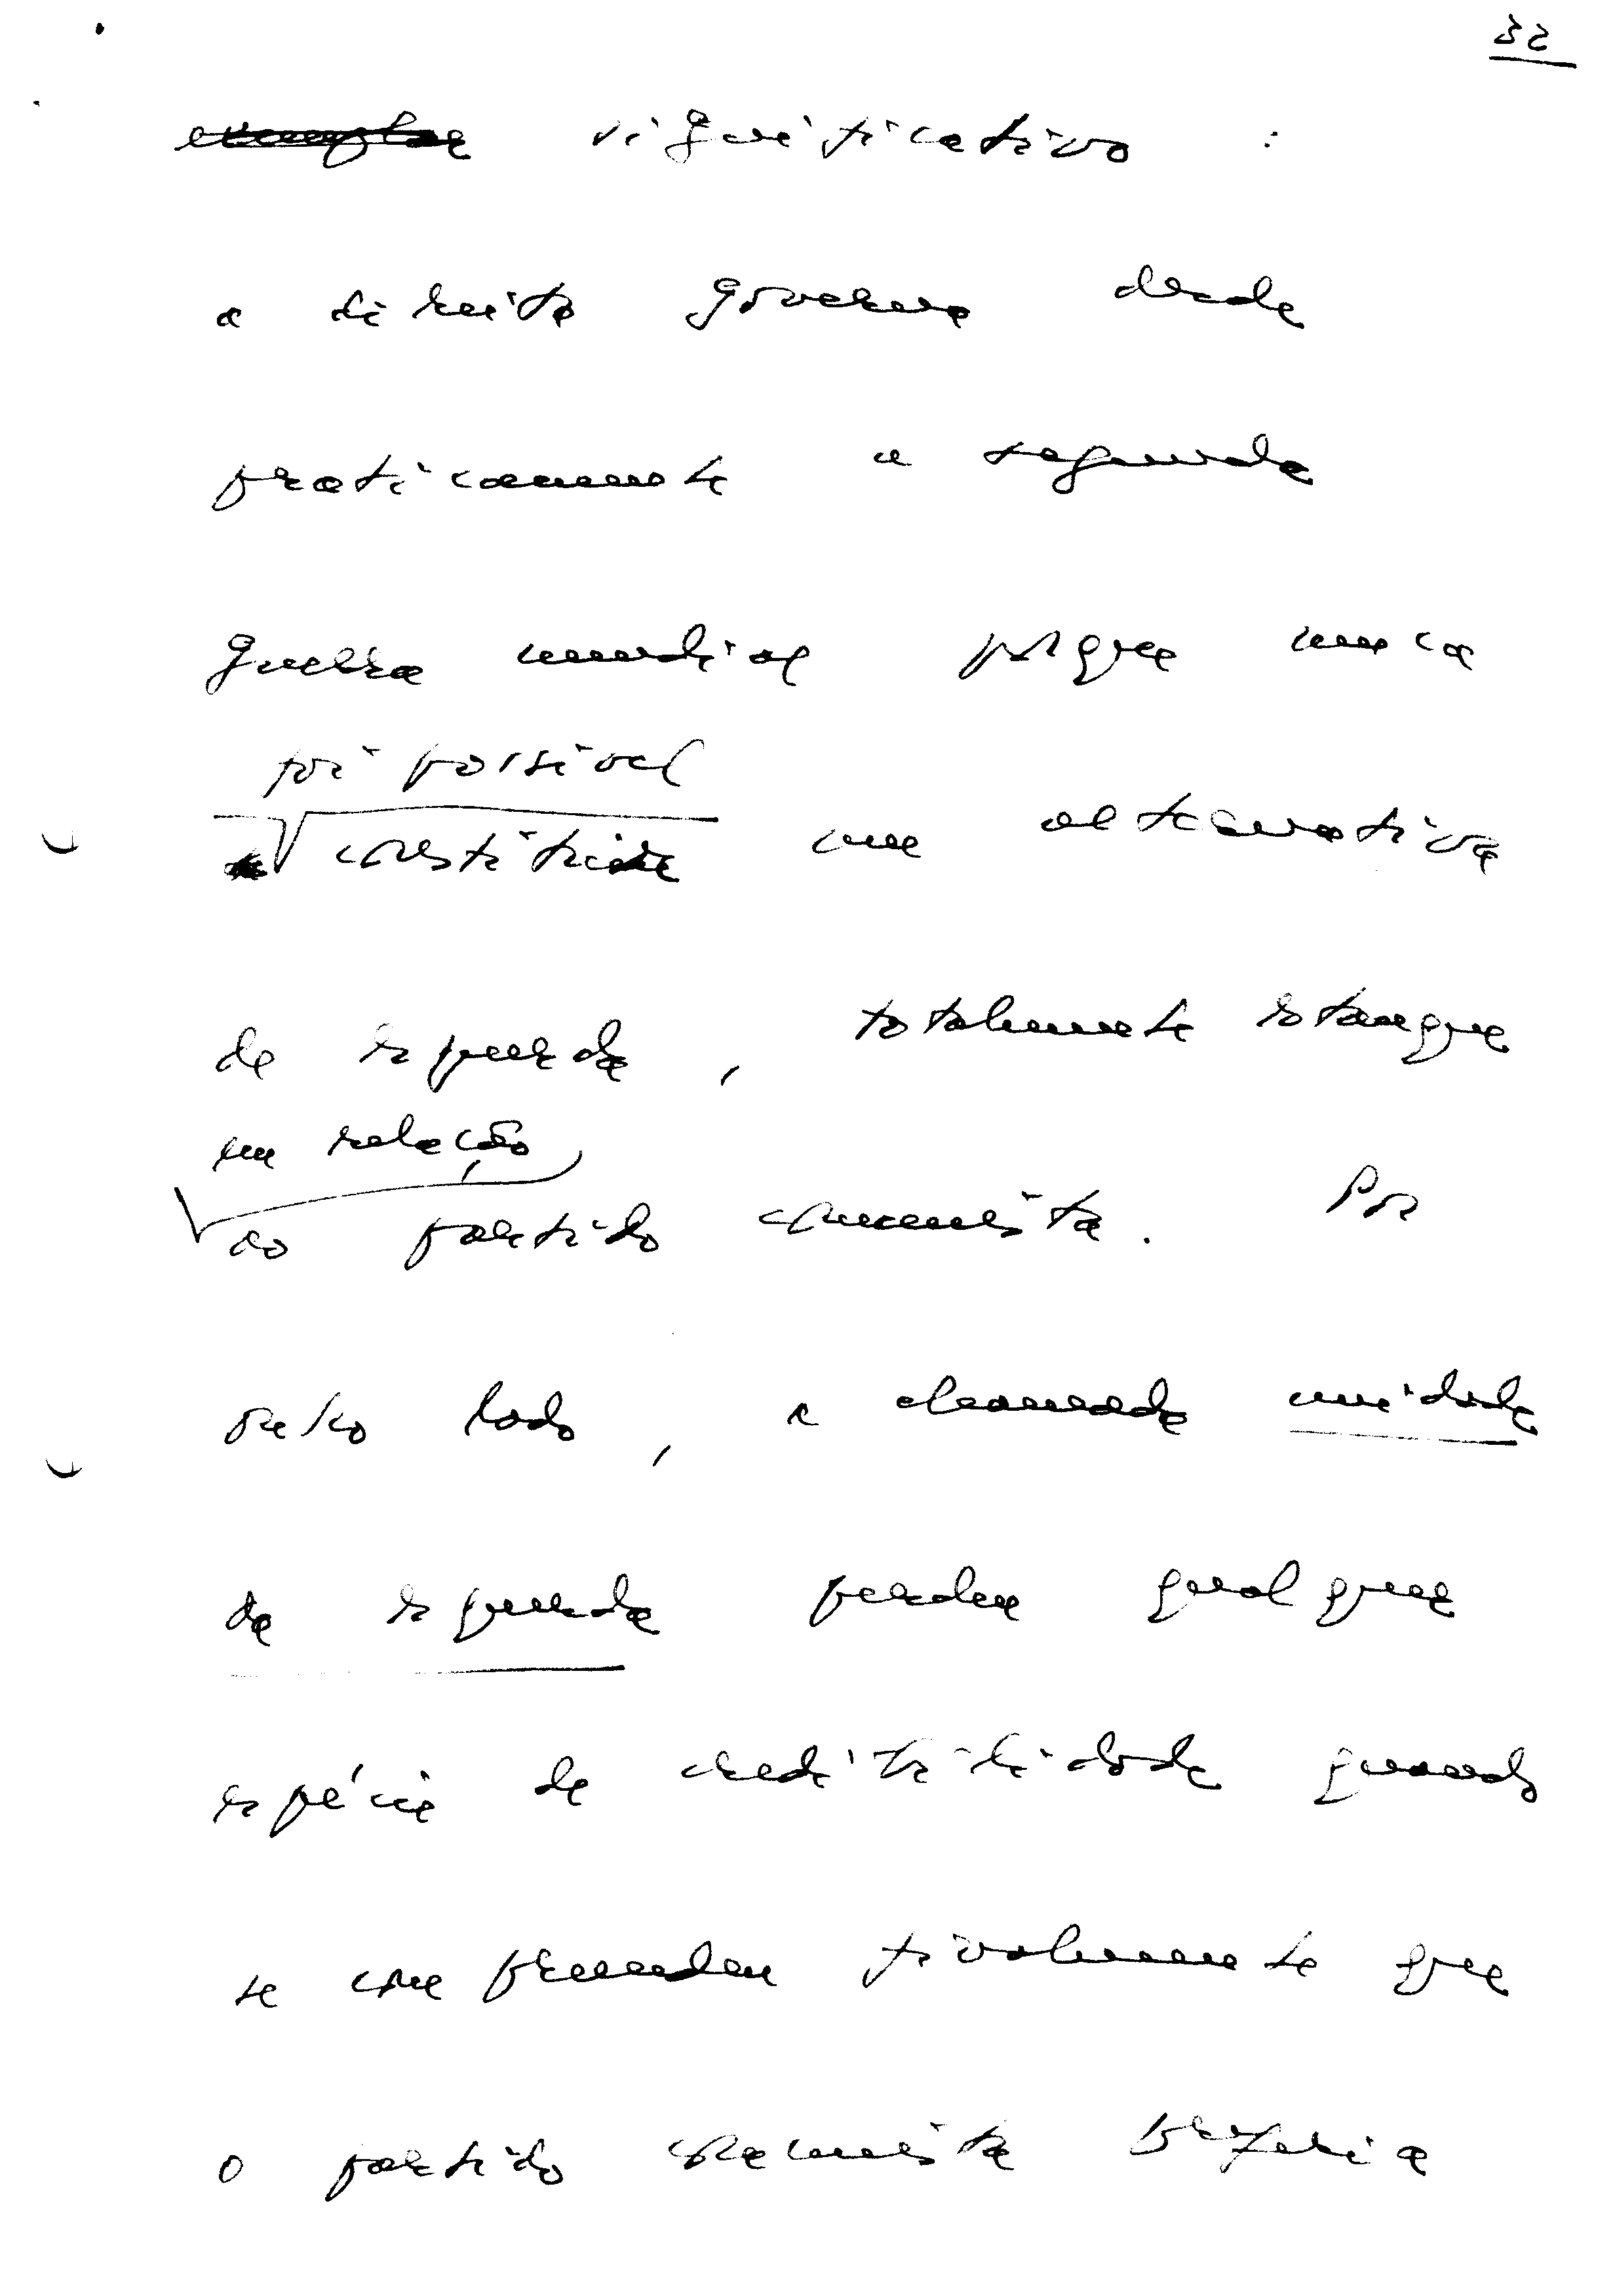 32
significativo :
a direita governa desde
praticamente a segunda
guerra mundial porque nunca
foi possível
constituir uma alternativa
de esquerda, totalmente estanque
em relação
ao partido comunista. Por
outro lado, a chamada unidade
da esquerda perdeu qualquer
espécie de credibilidade quando
se compreendeu finalmente que
o partido comunista